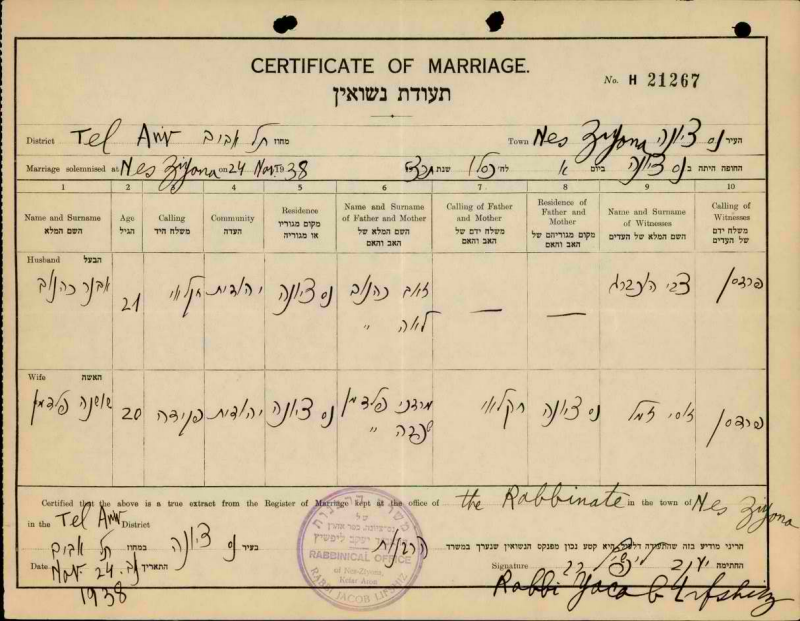 CERTIFICATE OF MARRIAGE.
No. H 21267
תעודת נשואין
District Tel Aviv תל אביב מחוז Town Nes Ziyona נס ציונה העיר
Marriage solemnised at Nes Ziyona on 24 Nov. 38 שנת לח' כסלו ביום א החופה היתה ב נס ציונה
1 2 3 4 5 6 7 8 9 10
Name and Surname Age Calling Community Residence Name and Surname of Father and Mother Calling of Father and Mother Residence of Father and Mother Name and Surname of Witnesses Calling of Witnesses
השם המלא הגיל משלח היד העדה מקום מגוריו או מגוריה השם המלא של האב והאם משלח ידם של האב והאם מקום מגוריהם של האב והאם השם המלא של העדים משלח ידם של העדים
Husband הבעל
אבנר כהנוב 21 חקלאי יהודית נס ציונה זאב כהנוב — — צבי פרדסן
לאה "
Wife האשה
שושנה פלדמן 20 פקידה יהודית נס ציונה מרדכי פלדמן חקלאי נס ציונה יוסי פרדסן
"
Certified that the above is a true extract from the Register of Marriage kept at the office of the Rabbinate in the town of Nes Ziyona
in the Tel Aviv District
הריני מודיע בזה שהתעודה דלעיל היא קטע נכון מפנקס הנשואין שנערך במשרד הרבנות
בעיר נס ציונה במחוז תל אביב
Date Nov. 24. התאריך
1938
Signature החתימה יעקב ליפשיץ רב
Rabbi Jacob Lifshitz
RABBINICAL OFFICE
of Nes-Ziyona,
Kefar Aron
RABBI JACOB LIPSHITZ